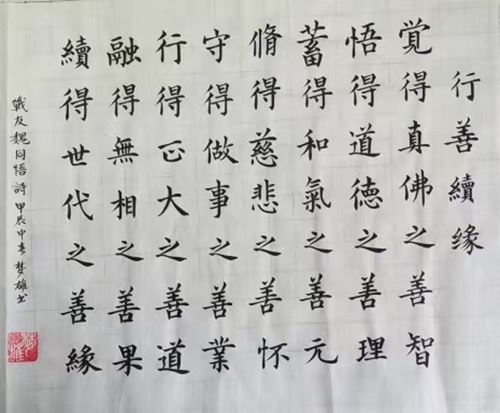 行善續缘
覚得真佛之善智
悟得道德之善理
蓄得和氣之善元
脩得慈悲之善怀
守得做事之善業
行得正大之善道
融得無相之善果
續得世代之善緣
戰友魏同悟詩 甲辰中春 梦雄书